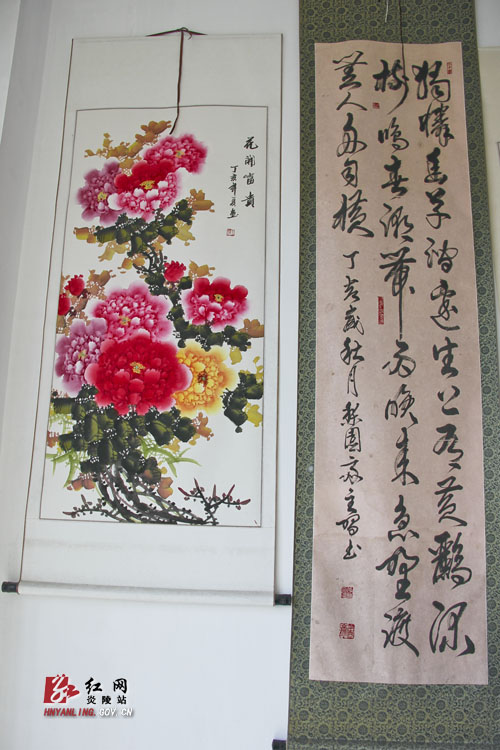 花開富貴
獨憐幽草澗邊生上有黃鸝深
樹鳴春潮帶雨晚來急野渡
無人舟自橫 丁亥歲秋月
红网
炎陵站
HNYANLING.GOV.CN